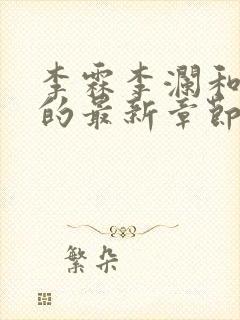 李霖李澜和
的最新章节
繁朵